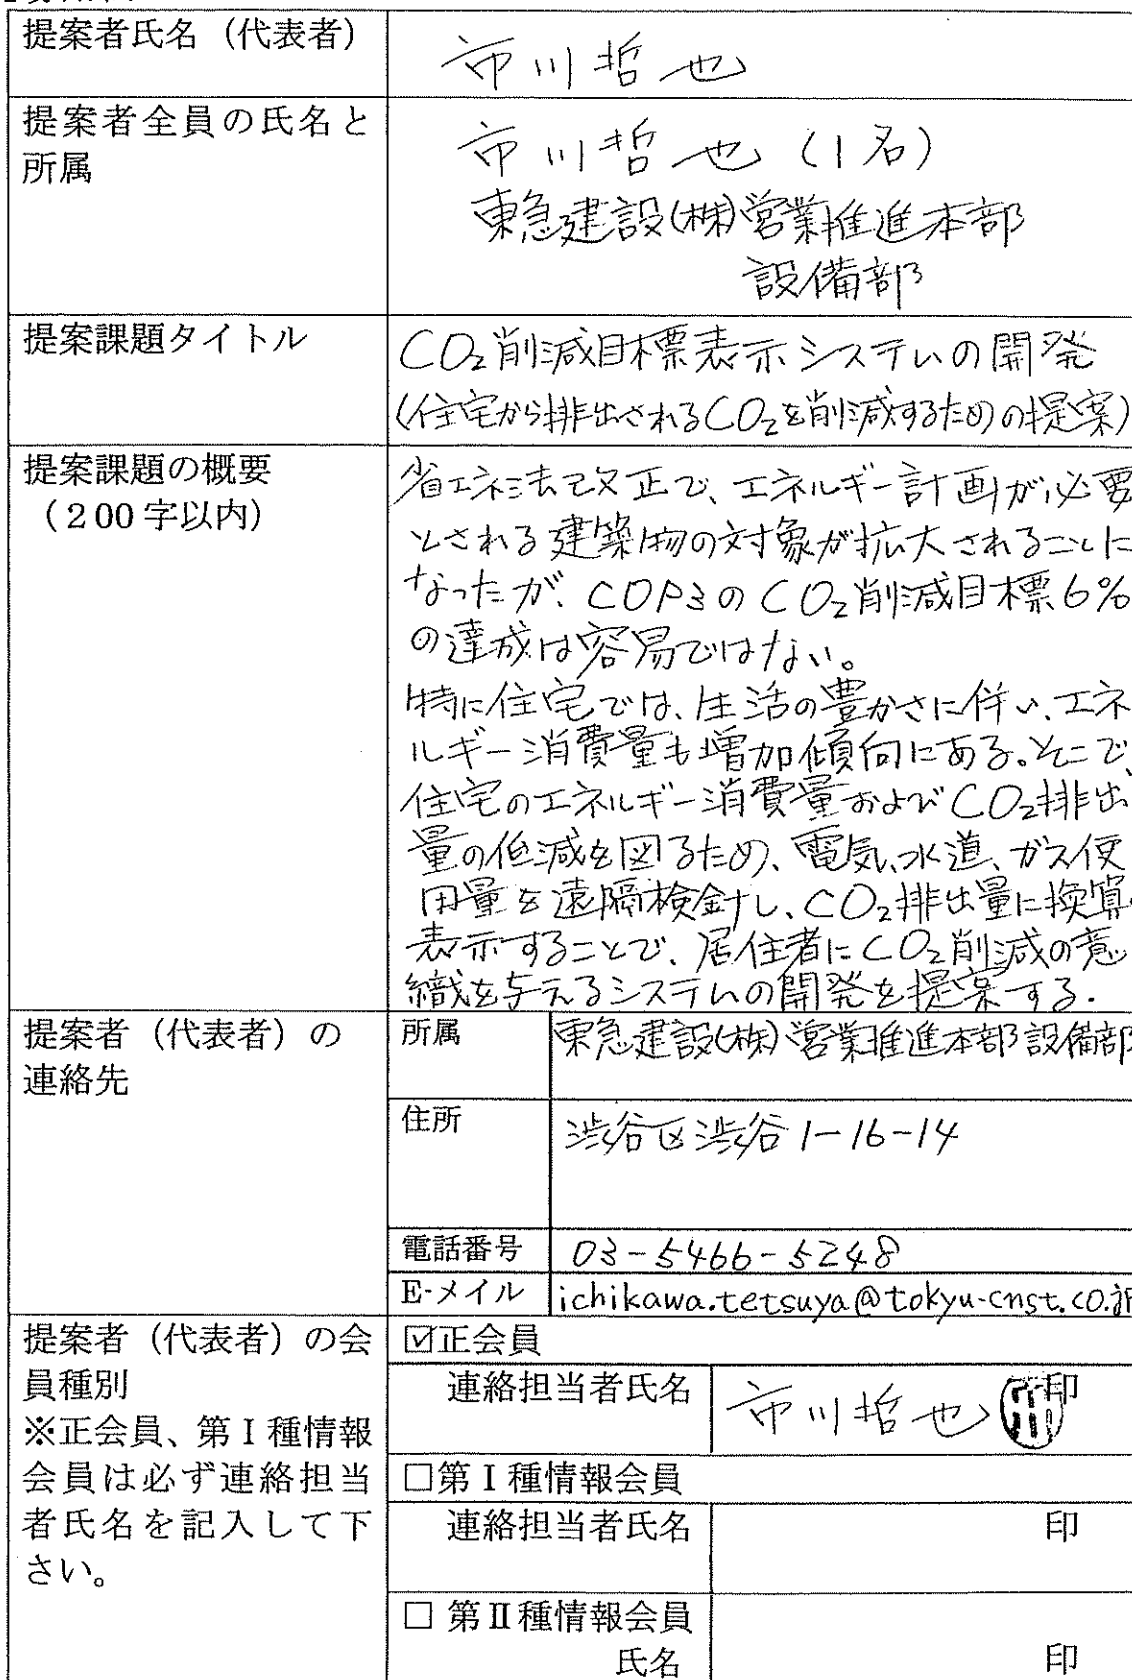 提案者氏名（代表者）
市川哲也
提案者全員の氏名と
所属
市川哲也（1名）
東急建設(株)営業推進本部
設備部
提案課題タイトル
CO₂削減目標表示システムの開発
(住宅から排出されるCO₂を削減するための提案)
提案課題の概要
（200字以内）
省エネ法改正で、エネルギー計画が必要
とされる建築物の対象が拡大されることに
なったが、COP3のCO₂削減目標6%
の達成は容易ではない。
特に住宅では、生活の豊かさに伴い、エネ
ルギー消費量も増加傾向にある。そこで、
住宅のエネルギー消費量およびCO₂排出
量の低減を図るため、電気、水道、ガス使
用量を遠隔検針し、CO₂排出量に換算・
表示することで、居住者にCO₂削減の意
織を与えるシステムの開発を提案する.
提案者（代表者）の
連絡先
所属
東急建設(株)営業推進本部設備部
住所
渋谷区渋谷1-16-14
電話番号
03-5466-5248
E-メイル
ichikawa.tetsuya@tokyu-cnst.co.jp
提案者（代表者）の会
員種別
※正会員、第Ⅰ種情報
会員は必ず連絡担当
者氏名を記入して下
さい。
☑正会員
連絡担当者氏名
市川哲也 印
□第Ⅰ種情報会員
連絡担当者氏名
印
□ 第Ⅱ種情報会員
氏名
印